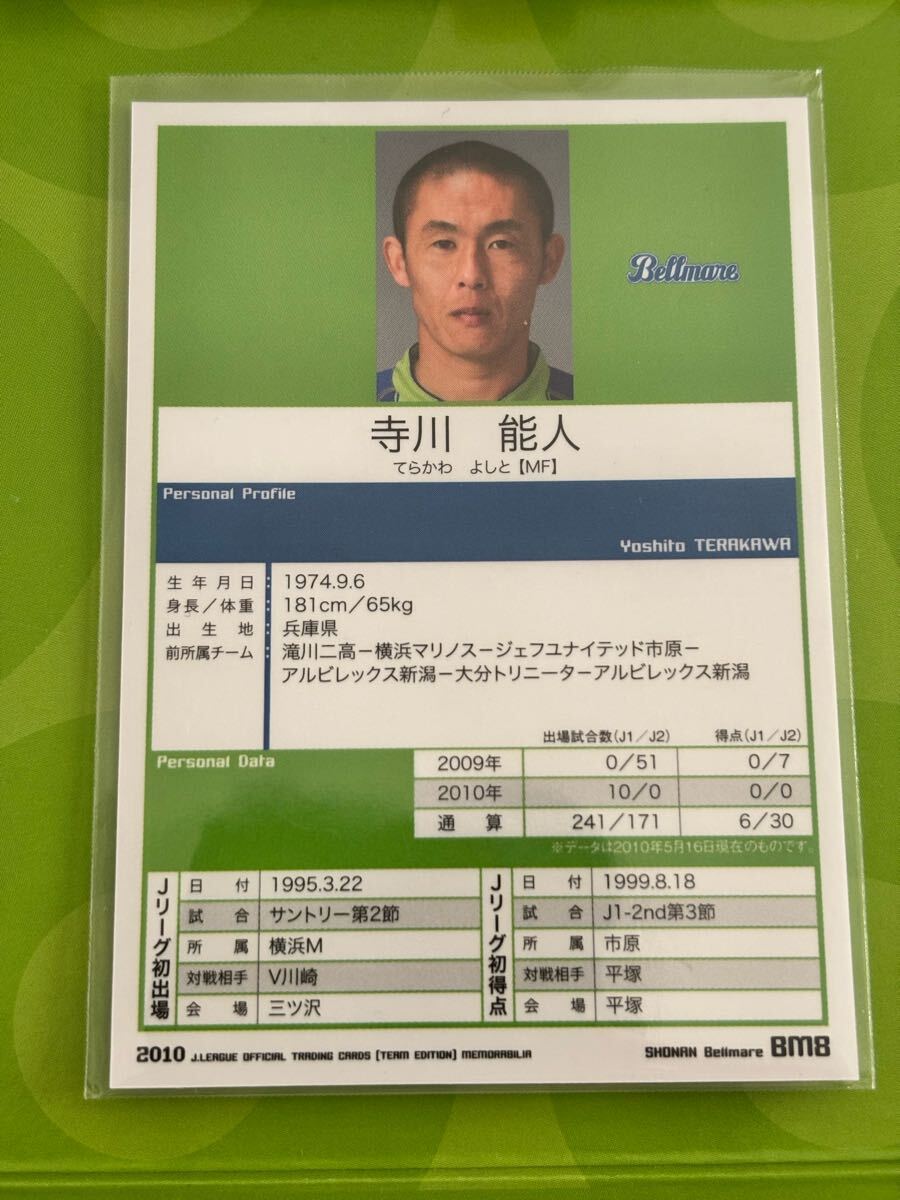 Bellmare
寺川 能人
てらかわ よしと【MF】
Personal Profile
Yoshito TERAKAWA
生年月日 : 1974.9.6
身長／体重 : 181cm／65kg
出生地 : 兵庫県
前所属チーム : 滝川二高－横浜マリノス－ジェフユナイテッド市原－
アルビレックス新潟－大分トリニータ－アルビレックス新潟
出場試合数(J1／J2) 得点(J1／J2)
Personal Data
2009年 0/51 0/7
2010年 10/0 0/0
通算 241/171 6/30
※データは2010年5月16日現在のものです。
Jリーグ初出場
日付 1995.3.22
試合 サントリー第2節
所属 横浜M
対戦相手 V川崎
会場 三ツ沢
Jリーグ初得点
日付 1999.8.18
試合 J1-2nd第3節
所属 市原
対戦相手 平塚
会場 平塚
2010 J.LEAGUE OFFICIAL TRADING CARDS [TEAM EDITION] MEMORABILIA
SHONAN Bellmare BM8